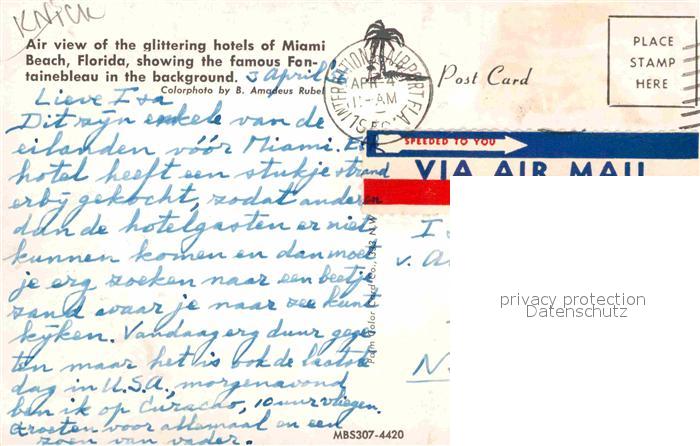 KNICK
Air view of the glittering hotels of Miami
Beach, Florida, showing the famous Fon-
tainebleau in the background.
Colorphoto by B. Amadeus Rubel
3 April
Lieve Isa
Dit zijn enkele van de
eilanden vóór Miami. Elk
hotel heeft een stukje strand
erbij gekocht, zodat anderen
dan de hotelgasten er niet
kunnen komen en dan moet
je erg zoeken naar een beetje
zand waar je naar zee kunt
kijken. Vandaag erg duur gege
ten maar het is ook de laatste
dag in U.S.A, morgenavond
ben ik op Curacao, 10 uur vliegen.
Groeten voor allemaal en een
zoen van vader.
INTERNATIONAL AIRPORT FLA.
APR 4
11-AM
Post Card
PLACE
STAMP
HERE
SPEEDED TO YOU
VIA AIR MAIL
I
v.
N
Palm Color Card Co.,
MBS307-4420
privacy protection
Datenschutz